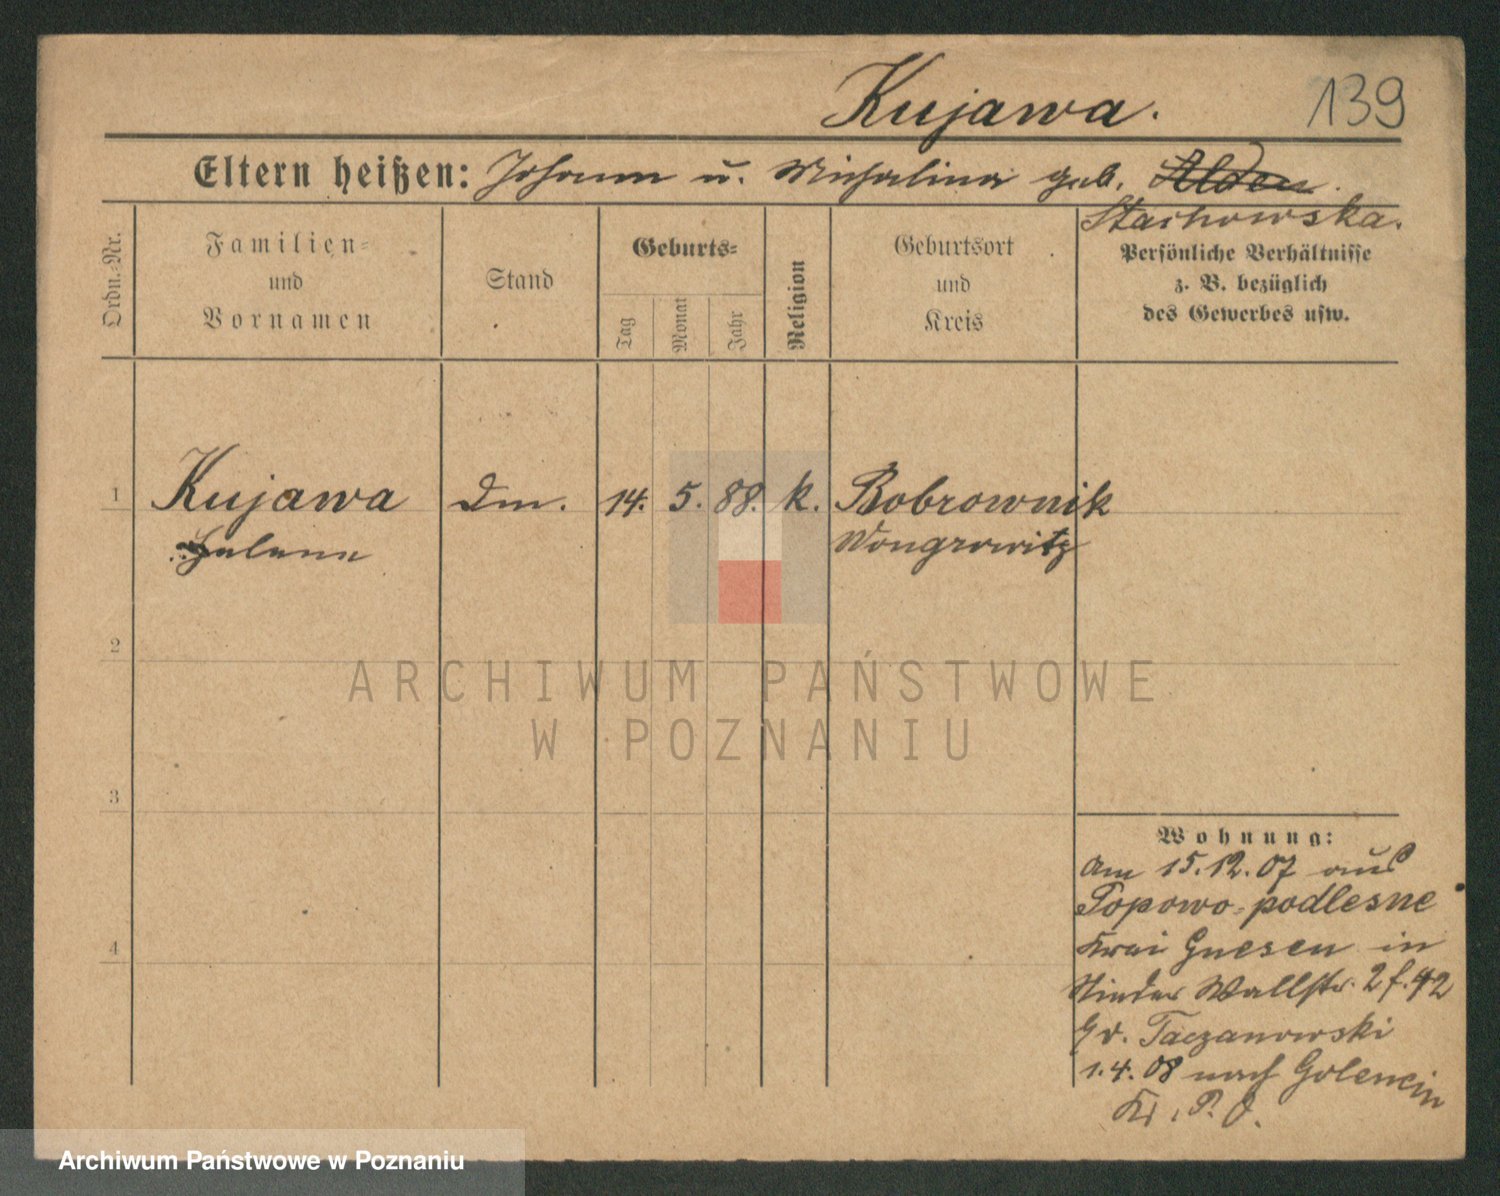 Kujawa.
139
Eltern heißen: Johann u. Michalina geb. Alden
Stachowska.
Ordn.-Nr.
Familien-
und
Vornamen
Stand
Geburts-
Tag
Monat
Jahr
Religion
Geburtsort
und
Kreis
Persönliche Verhältnisse
z. B. bezüglich
des Gewerbes usw.
1 Kujawa Dm. 14. 5. 88. k. Bobrownik
Helena Wongrowitz
2
3
4
Wohnung:
Am 15.12.07 aus
Popowo-podlesne
Gnesen in
Wallstr. 2
Taczanowski
1.4.08 nach Golencin
Kr. P. O.
ARCHIWUM PAŃSTWOWE
W POZNANIU
Archiwum Państwowe w Poznaniu